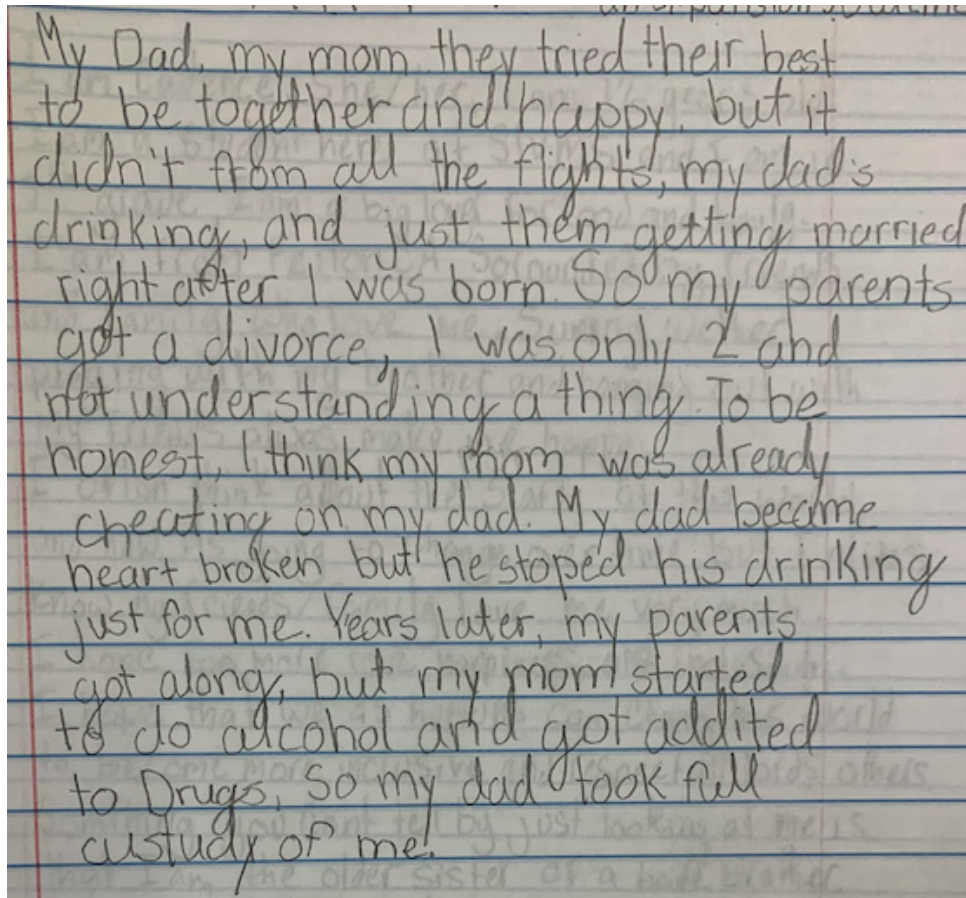 My Dad, my mom they tried their best
to be together and happy, but it
didn't from all the fights, my dad's
drinking, and just them getting married
right after I was born. So my parents
got a divorce, I was only 2 and
not understanding a thing. To be
honest, I think my mom was already
cheating on my dad. My dad became
heart broken but he stoped his drinking
just for me. Years later, my parents
got along, but my mom started
to do alcohol and got addited
to Drugs. So my dad took full
custudy of me.